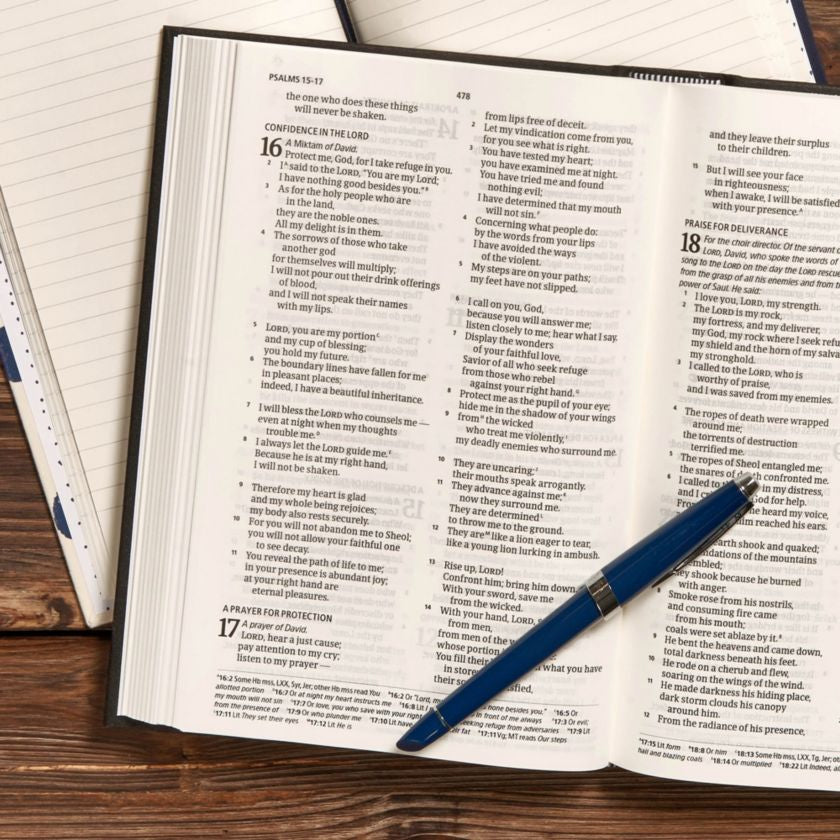 PSALMS 15–17
478
the one who does these things
will never be shaken.
CONFIDENCE IN THE LORD
16 A Miktam of David.
Protect me, God, for I take refuge in you.
2 I said to the LORD, “You are my Lord;
I have nothing good besides you.”
3 As for the holy people who are
in the land,
they are the noble ones.
All my delight is in them.
4 The sorrows of those who take
another god
for themselves will multiply;
I will not pour out their drink offerings
of blood,
and I will not speak their names
with my lips.
5 LORD, you are my portion
and my cup of blessing;
you hold my future.
6 The boundary lines have fallen for me
in pleasant places;
indeed, I have a beautiful inheritance.
7 I will bless the LORD who counsels me —
even at night when my thoughts
trouble me.
8 I always let the LORD guide me.
Because he is at my right hand,
I will not be shaken.
9 Therefore my heart is glad
and my whole being rejoices;
my body also rests securely.
10 For you will not abandon me to Sheol;
you will not allow your faithful one
to see decay.
11 You reveal the path of life to me;
in your presence is abundant joy;
at your right hand are
eternal pleasures.
A PRAYER FOR PROTECTION
17 A prayer of David.
LORD, hear a just cause;
pay attention to my cry;
listen to my prayer —
from lips free of deceit.
2 Let my vindication come from you,
for you see what is right.
3 You have tested my heart;
you have examined me at night.
You have tried me and found
nothing evil;
I have determined that my mouth
will not sin.
4 Concerning what people do:
by the words from your lips
I have avoided the ways
of the violent.
5 My steps are on your paths;
my feet have not slipped.
6 I call on you, God,
because you will answer me;
listen closely to me; hear what I say.
7 Display the wonders
of your faithful love,
Savior of all who seek refuge
from those who rebel
against your right hand.
8 Protect me as the pupil of your eye;
hide me in the shadow of your wings
9 from the wicked
who treat me violently,
my deadly enemies who surround me.
10 They are uncaring;
their mouths speak arrogantly.
11 They advance against me;
now they surround me.
They are determined
to throw me to the ground.
12 They are like a lion eager to tear,
like a young lion lurking in ambush.
13 Rise up, LORD!
Confront him; bring him down.
With your sword, save me
from the wicked.
14 With your hand, LORD,
from men,
from men of the
whose portion
You fill their what you have
in store
their
16:2 Some Hb mss, LXX, Syr, Jer; other Hb mss read You 16:2 Or “Lord, my none besides you.” 16:5 Or
allotted portion 16:7 Or at night my heart instructs me 16:8 Lit in front of me always 17:3 Or evil;
my mouth will not sin 17:7 Or love, you who save with your right seeking refuge from adversaries 17:9 Lit
from the presence of 17:9 Or who plunder me 17:10 Lit fat 17:11 Vg; MT reads Our steps
17:11 Lit They set their eyes 17:12 Lit He is
and they leave their surplus
to their children.
15 But I will see your face
in righteousness;
when I awake, I will be satisfied
with your presence.
PRAISE FOR DELIVERANCE
18 For the choir director. Of the servant
LORD, David, who spoke the words of
song to the LORD on the day the LORD
from the grasp of all his enemies and from
power of Saul. He said:
1 I love you, LORD, my strength.
2 The LORD is my rock,
my fortress, and my deliverer,
my God, my rock where I seek
my shield and the horn of my
my stronghold.
3 I called to the LORD, who is
worthy of praise,
and I was saved from my enemies.
4 The ropes of death were wrapped
around me;
the torrents of destruction
terrified me.
5 The ropes of Sheol entangled me;
the snares of death confronted me.
6 I called to in my distress,
and I God for help.
From he heard my voice,
him reached his ears.
earth shook and quaked;
of the mountains
they shook because he burned
with anger.
8 Smoke rose from his nostrils,
and consuming fire came
from his mouth;
coals were set ablaze by it.
9 He bent the heavens and came down,
total darkness beneath his feet.
10 He rode on a cherub and flew,
soaring on the wings of the wind.
11 He made darkness his hiding place,
dark storm clouds his canopy
around him.
12 From the radiance of his presence,
17:15 Lit form 18:8 Or him 18:13 Some Hb mss, LXX, Tg, Jer;
hail and blazing coals 18:14 Or multiplied 18:22 Lit Indeed,